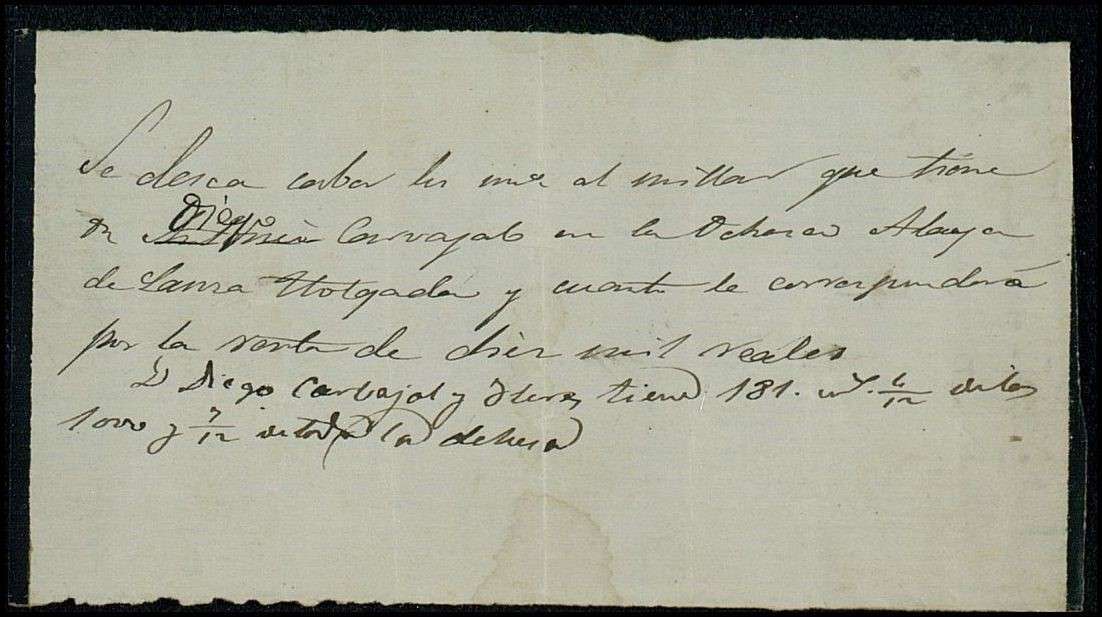 Se desea saber los mrs al millar que tiene
Diego
Dn Antonio Carvajal en la Dehesa
de Lanza Holgada y cuanto le corresponderá
por la renta de diez mil reales
D Diego Carbajal y tiene 181. 6/12 de los
1000 y 7/12 de toda la dehesa